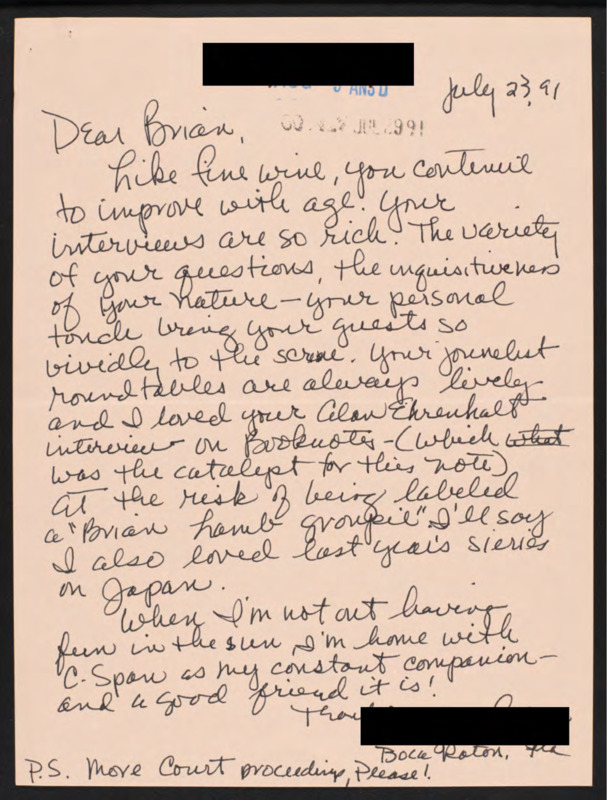 July 23, 91
Dear Brian,
Like fine wine, you contenuil
to improve with age. Your
interviews are so rich. The variety
of your questions, the inquisitiveness
of your nature - your personal
touch bring your guests so
vividly to the screne. Your jounelist
roundtables are always lively
and I loved your Alan Ehrenhalt
interview on Booknotes - (which what
was the catalyst for this note)
At the risk of being labeled
a "Brian Lamb groupie" I'll say
I also loved last year's sieries
on Japan.
When I'm not out having
fun in the sun I'm home with
C-Span as my constant companion -
and a good friend it is!
Boca Raton, Fla
P.S. More Court proceedings, Please!